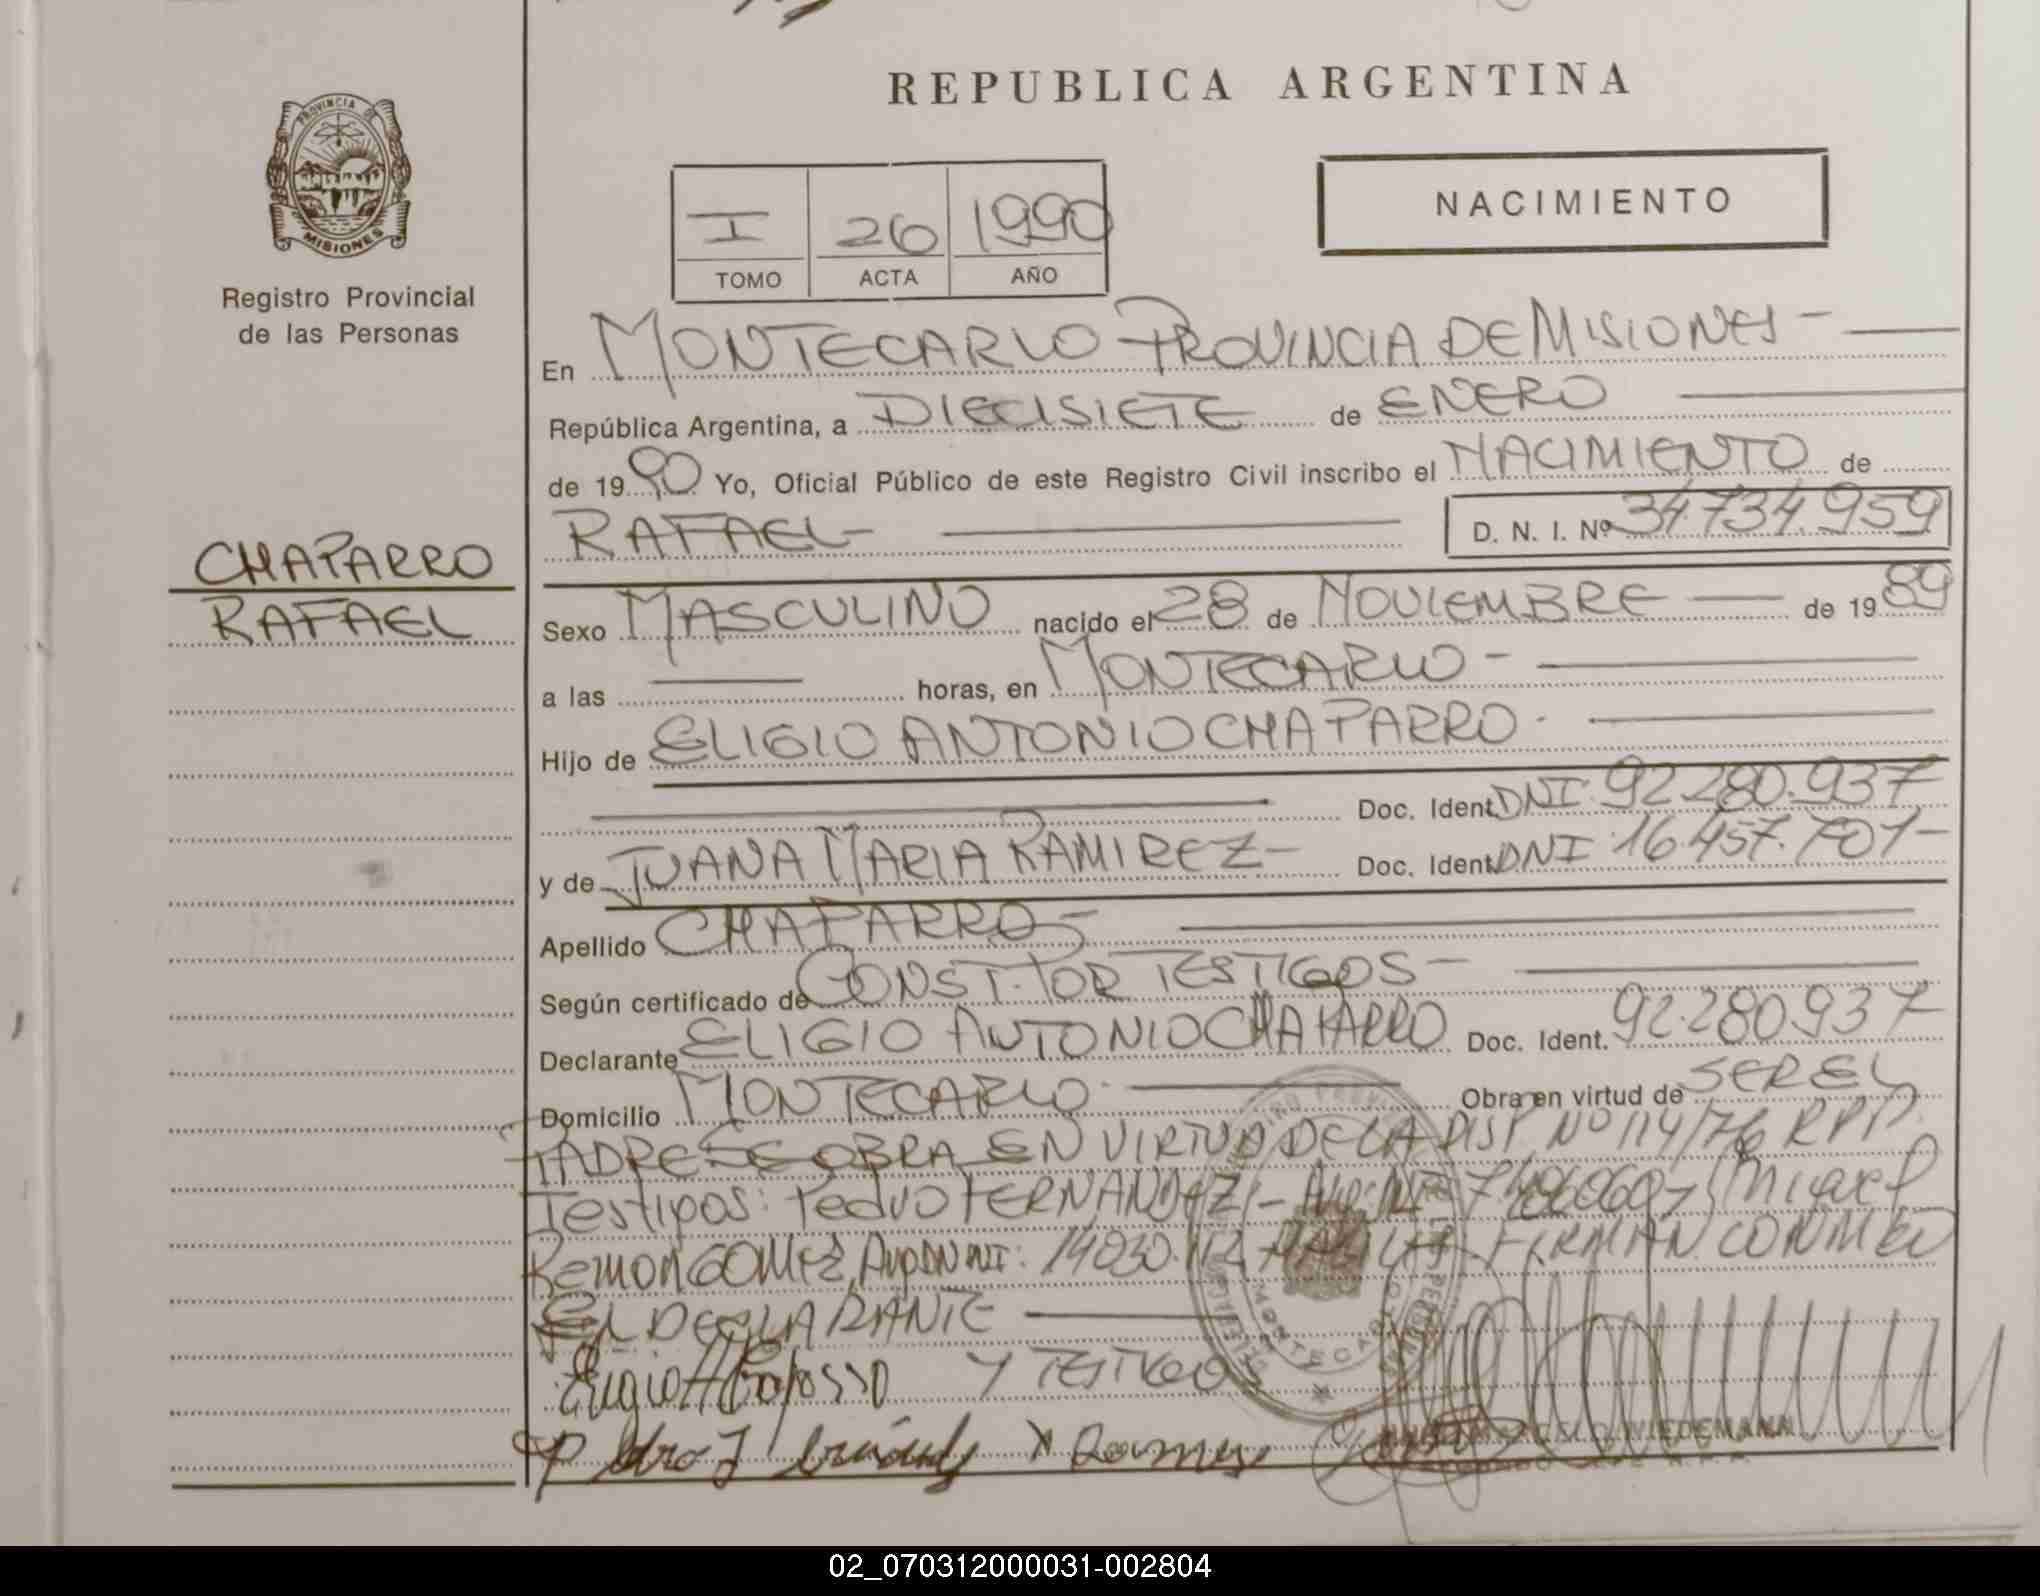 REPUBLICA ARGENTINA
PROVINCIA DE
MISIONES
Registro Provincial
de las Personas
NACIMIENTO
I 26 1990
TOMO ACTA AÑO
En MONTECARLO PROVINCIA DE MISIONES -
República Argentina, a DIECISIETE de ENERO
de 1990 Yo, Oficial Público de este Registro Civil inscribo el NACIMIENTO de
RAFAEL- D. N. I. Nº 34.734.959
CHAPARRO
RAFAEL
Sexo MASCULINO nacido el 28 de NOVIEMBRE de 1989
a las horas, en MONTECARLO -
Hijo de ELIGIO ANTONIO CHAPARRO.
Doc. Ident. DNI 92.280.937
y de JUANA MARIA RAMIREZ- Doc. Ident. DNI 16.457.701-
Apellido CHAPARRO-
Según certificado de CONST. POR TESTIGOS-
Declarante ELIGIO ANTONIO CHAPARRO Doc. Ident. 92.280.937
Domicilio MONTECARLO. Obra en virtud de SER EL
PADRE SE OBRA EN VIRTUD DE LA DISP. Nº 114/76 RPP.
Testigos: Pedro FERNANDEZ- Miguel
Ramon GOMEZ, 14030.112 FIRMAN CONMIGO
EL DECLARANTE
Y TESTIGOS
MONTECARLO
WIEDEMANN
02_070312000031-002804